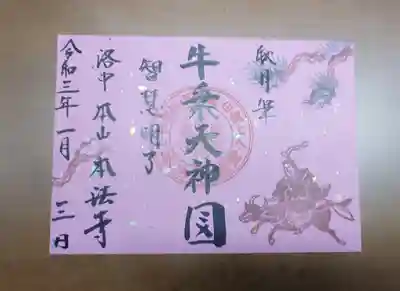 啟月筆
牛乗天神図
智慧明了
洛中 本山 本法寺
令和三年一月三日